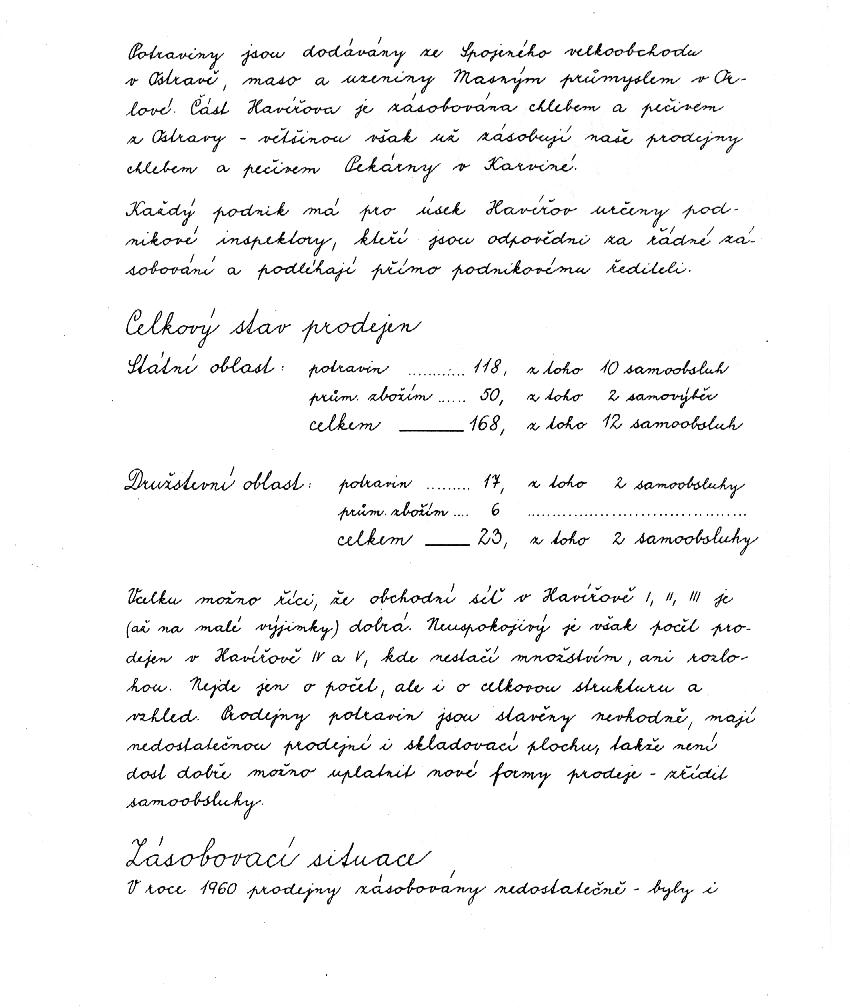 Potraviny jsou dodávány ze Spojeného velkoobchodu
v Ostravě, maso a uzeniny Masným průmyslem v Or-
lové. Část Havířova je zásobována chlebem a pečivem
z Ostravy - většinou však už zásobují naše prodejny
chlebem a pečivem Pekárny v Karviné.
Každý podnik má pro úsek Havířov určeny pod-
nikové inspektory, kteří jsou odpovědni za řádné zá-
sobování a podléhají přímo podnikovému řediteli.
Celkový stav prodejen
Státní oblast: potravin .......... 118, z toho 10 samoobsluh
prům. zbožím ..... 50, z toho 2 samovýběr
celkem ______ 168, z toho 12 samoobsluh
Družstevní oblast: potravin ......... 17, z toho 2 samoobsluhy
prům. zbožím .... 6 .......................................
celkem ____ 23, z toho 2 samoobsluhy
Vcelku možno říci, že obchodní síť v Havířově I, II, III je
(až na malé výjimky) dobrá. Neuspokojivý je však počet pro-
dejen v Havířově IV a V, kde nestačí množstvím, ani rozlo-
hou. Nejde jen o počet, ale i o celkovou strukturu a
vzhled. Prodejny potravin jsou stavěny nevhodně, mají
nedostatečnou prodejní i skladovací plochu, takže není
dost dobře možno uplatnit nové formy prodeje - zřídit
samoobsluhy.
Zásobovací situace
V roce 1960 prodejny zásobovány nedostatečně - byly i